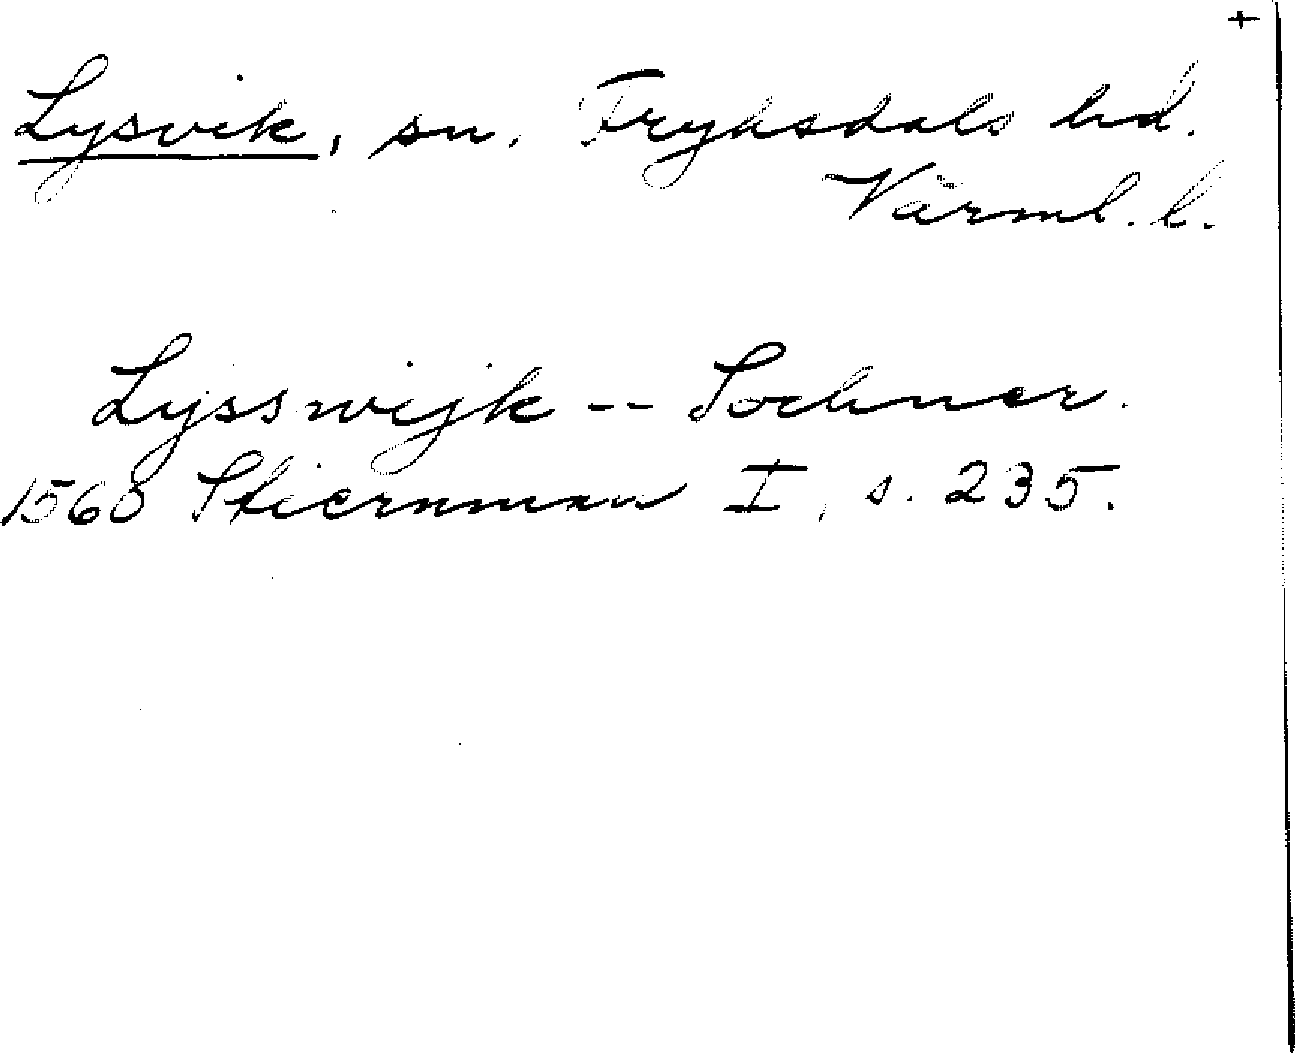 +
Lysvik, sn. Fryksdals hd.
Värml. l.
Lysswijk -- Sochner.
1560 Stiernman I, s. 235.